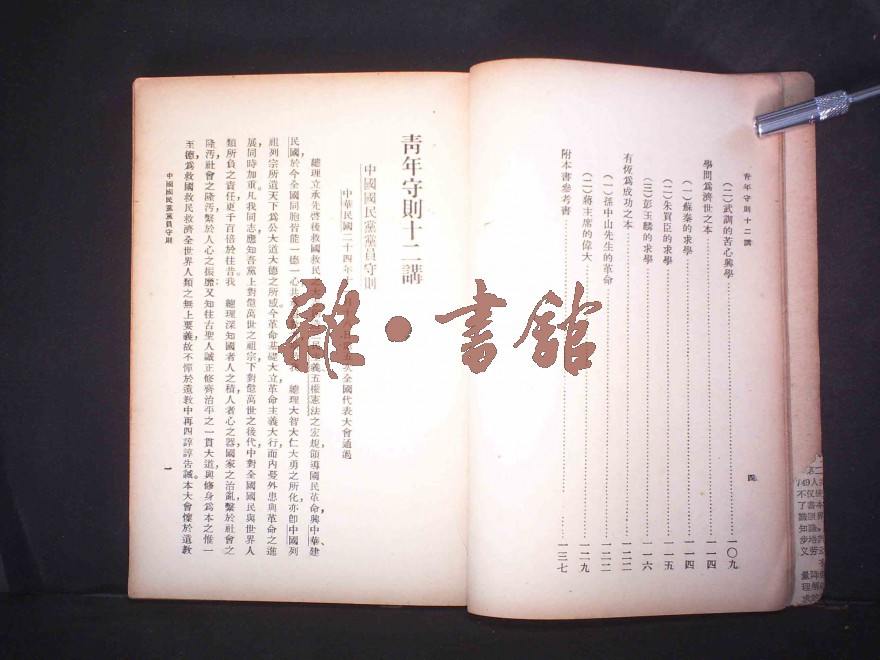 青年守則十二講
(二)武訓的苦心興學 一〇九
學問爲濟世之本 一一四
(一)蘇秦的求學 一一四
(二)朱買臣的求學 一一五
(三)彭玉麟的求學 一一六
有恆爲成功之本 一二二
(一)孫中山先生的革命 一二二
(二)蔣主席的偉大 一二九
附本書參考書 一三七
四
青年守則十二講
中國國民黨黨員守則
中華民國二十四年 五次全國代表大會通過
總理立承先啓後救國救民之大 民 義五權憲法之宏規領導國民革命,興中華、建
民國於今全國同胞皆能一德一心共 總理大智大仁大勇之所化亦卽中國列
祖列宗所遺天下爲公大道大德之所感今革命基礎大立革命主義大行而內憂外患與革命之進
展同時加重凡我同志應知吾黨上對億萬世之祖宗下對億萬世之後代中對全國國民與世界人
類所負之責任更千百倍於往昔我 總理深知國者人之積人者心之器國家之治亂繫於社會之
隆汚社會之隆汚繫於人心之振靡又知往古聖人誠正修齊治平之一貫大道與修身爲本之惟一
至德爲救國救民救濟全世界人類之無上要義故不憚於遺敎中再四諄諄告誡本大會懷於遺敎
中國國民黨黨員守則
一
雜·書館